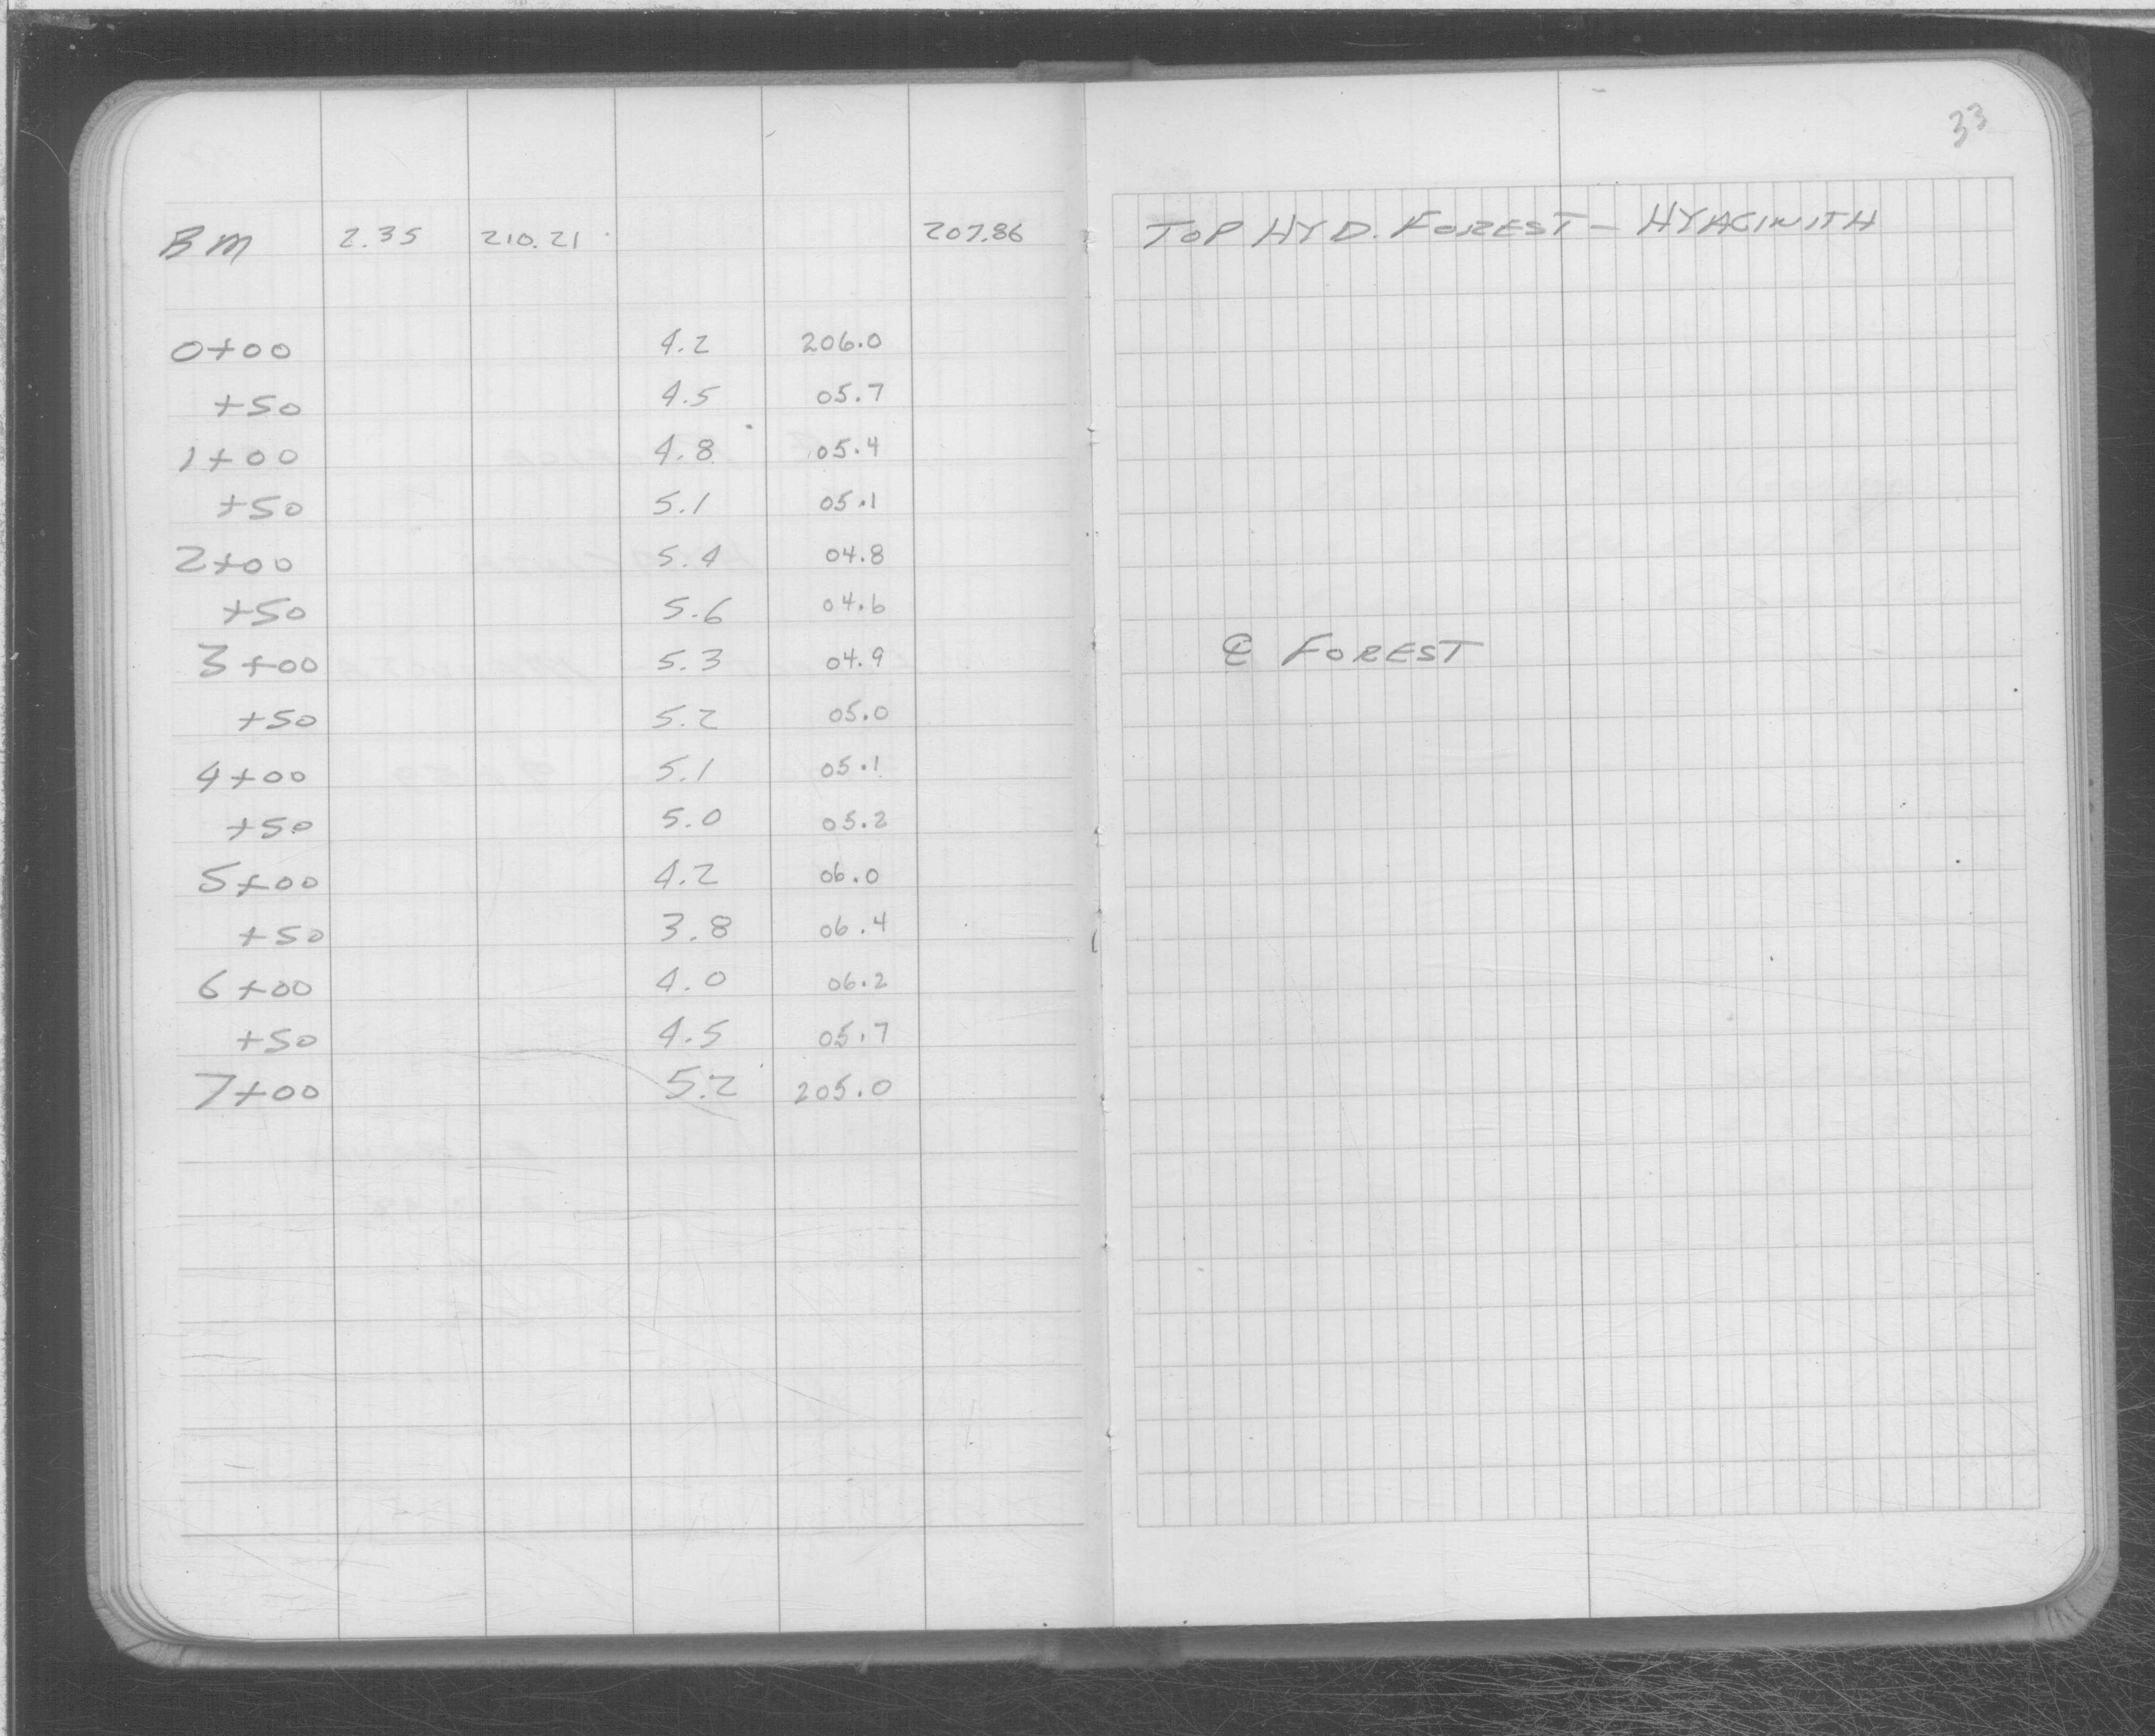 33
BM 2.35 210.21 207.86 TOP HYD. FOREST - HYACINITH
0+00 4.2 206.0
+50 4.5 05.7
1+00 4.8 05.4
+50 5.1 05.1
2+00 5.4 04.8
+50 5.6 04.6
3+00 5.3 04.9 ℄ FOREST
+50 5.2 05.0
4+00 5.1 05.1
+50 5.0 05.2
5+00 4.2 06.0
+50 3.8 06.4
6+00 4.0 06.2
+50 4.5 05.7
7+00 5.2 205.0